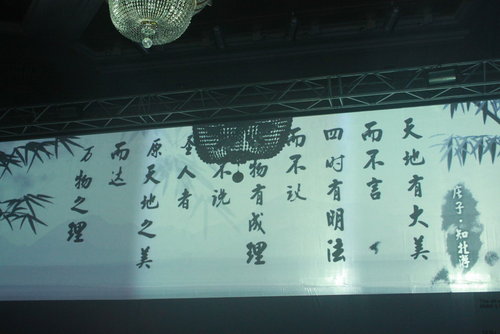 庄子·知北游
天地有大美
而不言
四时有明法
而不议
物有成理
不说
圣人者
原天地之美
而达
万物之理